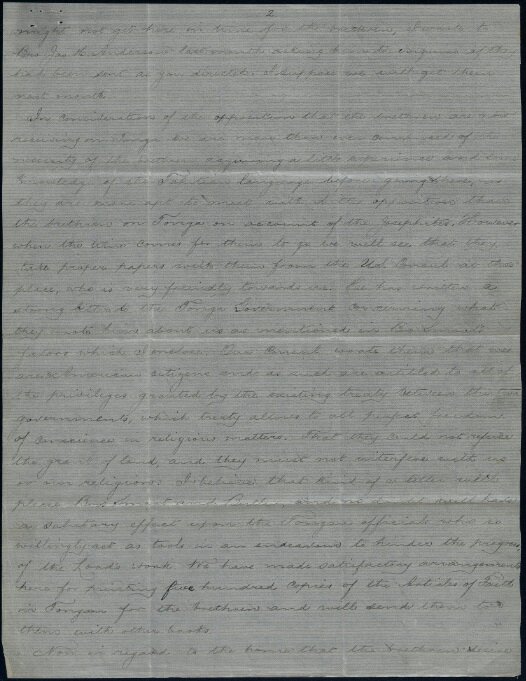 2
might not get here in time for the brethren, I wrote to
Bro Jas. H. Anderson last month asking him to enquire if they
had been sent as you directed. I suppose we will get them
next month.
In consideration of the opposition that the brethren are now
receiving on Tonga we are more than ever convinced of the
necessity of the brethren acquiring a little experience and some
knowledge of the Tahitian language before going there, as
they are more apt to meet with the opposition than
the brethren on Tonga on account of the Josephites. However
when the time comes for them to go we will see that they
take proper papers with them from the U.S. Consul at this
place, who is very friendly towards us. He has written a
strong letter to the Tonga Government concerning what
they wrote him about us as mentioned in Bro Smoot's
letter which I enclose. Our Consul wrote them that we
are American citizens and as such are entitled to all of
the privileges granted by the existing treaty between the two
governments, which treaty allows to all perfect freedom
of conscience in religious matters. That they could not refuse
the grant of land, and they must not interfere with us
or our religion. I believe that kind of a letter will
please Bros Smoot and Butler, and no doubt will have
a salutary effect upon the Tongan officials who so
willingly act as tools in an endeavor to hinder the progress
of the Lords work. We have made satisfactory arrangements
here for printing five hundred copies of the Articles of Faith
in Tongan for the brethren and will send them to
them with other books.
Now in regard to the home that the brethren desire